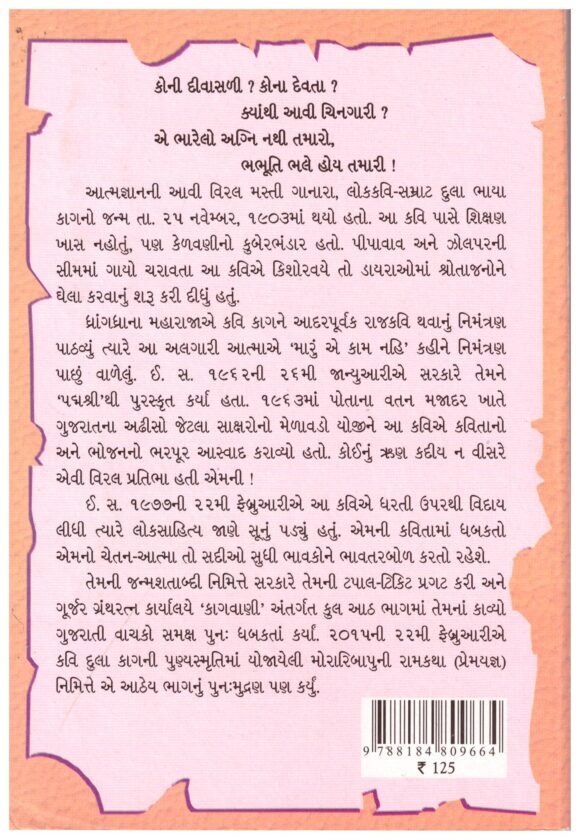 કોની દીવાસળી ? કોના દેવતા ?
ક્યાંથી આવી ચિનગારી ?
એ ભારેલો અગ્નિ નથી તમારો,
ભભૂતિ ભલે હોય તમારી !
આત્મજ્ઞાનની આવી વિરલ મસ્તી ગાનારા, લોકકવિ-સમ્રાટ દુલા ભાયા
કાગનો જન્મ તા. ૨૫ નવેમ્બર, ૧૯૦૩માં થયો હતો. આ કવિ પાસે શિક્ષણ
ખાસ નહોતું, પણ કેળવણીનો કુબેરભંડાર હતો. પીપાવાવ અને ઝોલપરની
સીમમાં ગાયો ચરાવતા આ કવિએ કિશોરવયે તો ડાયરાઓમાં શ્રોતાજનોને
ઘેલા કરવાનું શરૂ કરી દીધું હતું.
ધ્રાંગધ્રાના મહારાજાએ કવિ કાગને આદરપૂર્વક રાજકવિ થવાનું નિમંત્રણ
પાઠવ્યું ત્યારે આ અલગારી આત્માએ ‘મારું એ કામ નહિ’ કહીને નિમંત્રણ
પાછું વાળેલું. ઈ. સ. ૧૯૬૨ની ૨૬મી જાન્યુઆરીએ સરકારે તેમને
‘પદ્મશ્રી’થી પુરસ્કૃત કર્યા હતા. ૧૯૬૩માં પોતાના વતન મજાદર ખાતે
ગુજરાતના અઢીસો જેટલા સાક્ષરોનો મેળાવડો યોજીને આ કવિએ કવિતાનો
અને ભોજનનો ભરપૂર આસ્વાદ કરાવ્યો હતો. કોઈનું ઋણ કદીય ન વીસરે
એવી વિરલ પ્રતિભા હતી એમની !
ઈ. સ. ૧૯૭૭ની ૨૨મી ફેબ્રુઆરીએ આ કવિએ ધરતી ઉપરથી વિદાય
લીધી ત્યારે લોકસાહિત્ય જાણે સૂનું પડ્યું હતું. એમની કવિતામાં ધબકતો
એમનો ચેતન-આત્મા તો સદીઓ સુધી ભાવકોને ભાવતરબોળ કરતો રહેશે.
તેમની જન્મશતાબ્દી નિમિત્તે સરકારે તેમની ટપાલ-ટિકિટ પ્રગટ કરી અને
ગૂર્જર ગ્રંથરત્ન કાર્યાલયે ‘કાગવાણી’ અંતર્ગત કુલ આઠ ભાગમાં તેમનાં કાવ્યો
ગુજરાતી વાચકો સમક્ષ પુનઃ ધબકતાં કર્યાં. ૨૦૧૫ની ૨૨મી ફેબ્રુઆરીએ
કવિ દુલા કાગની પુણ્યસ્મૃતિમાં યોજાયેલી મોરારિબાપુની રામકથા (પ્રેમયજ્ઞ)
નિમિત્તે એ આઠેય ભાગનું પુનઃમુદ્રણ પણ કર્યું.
9 788184 809664
₹ 125